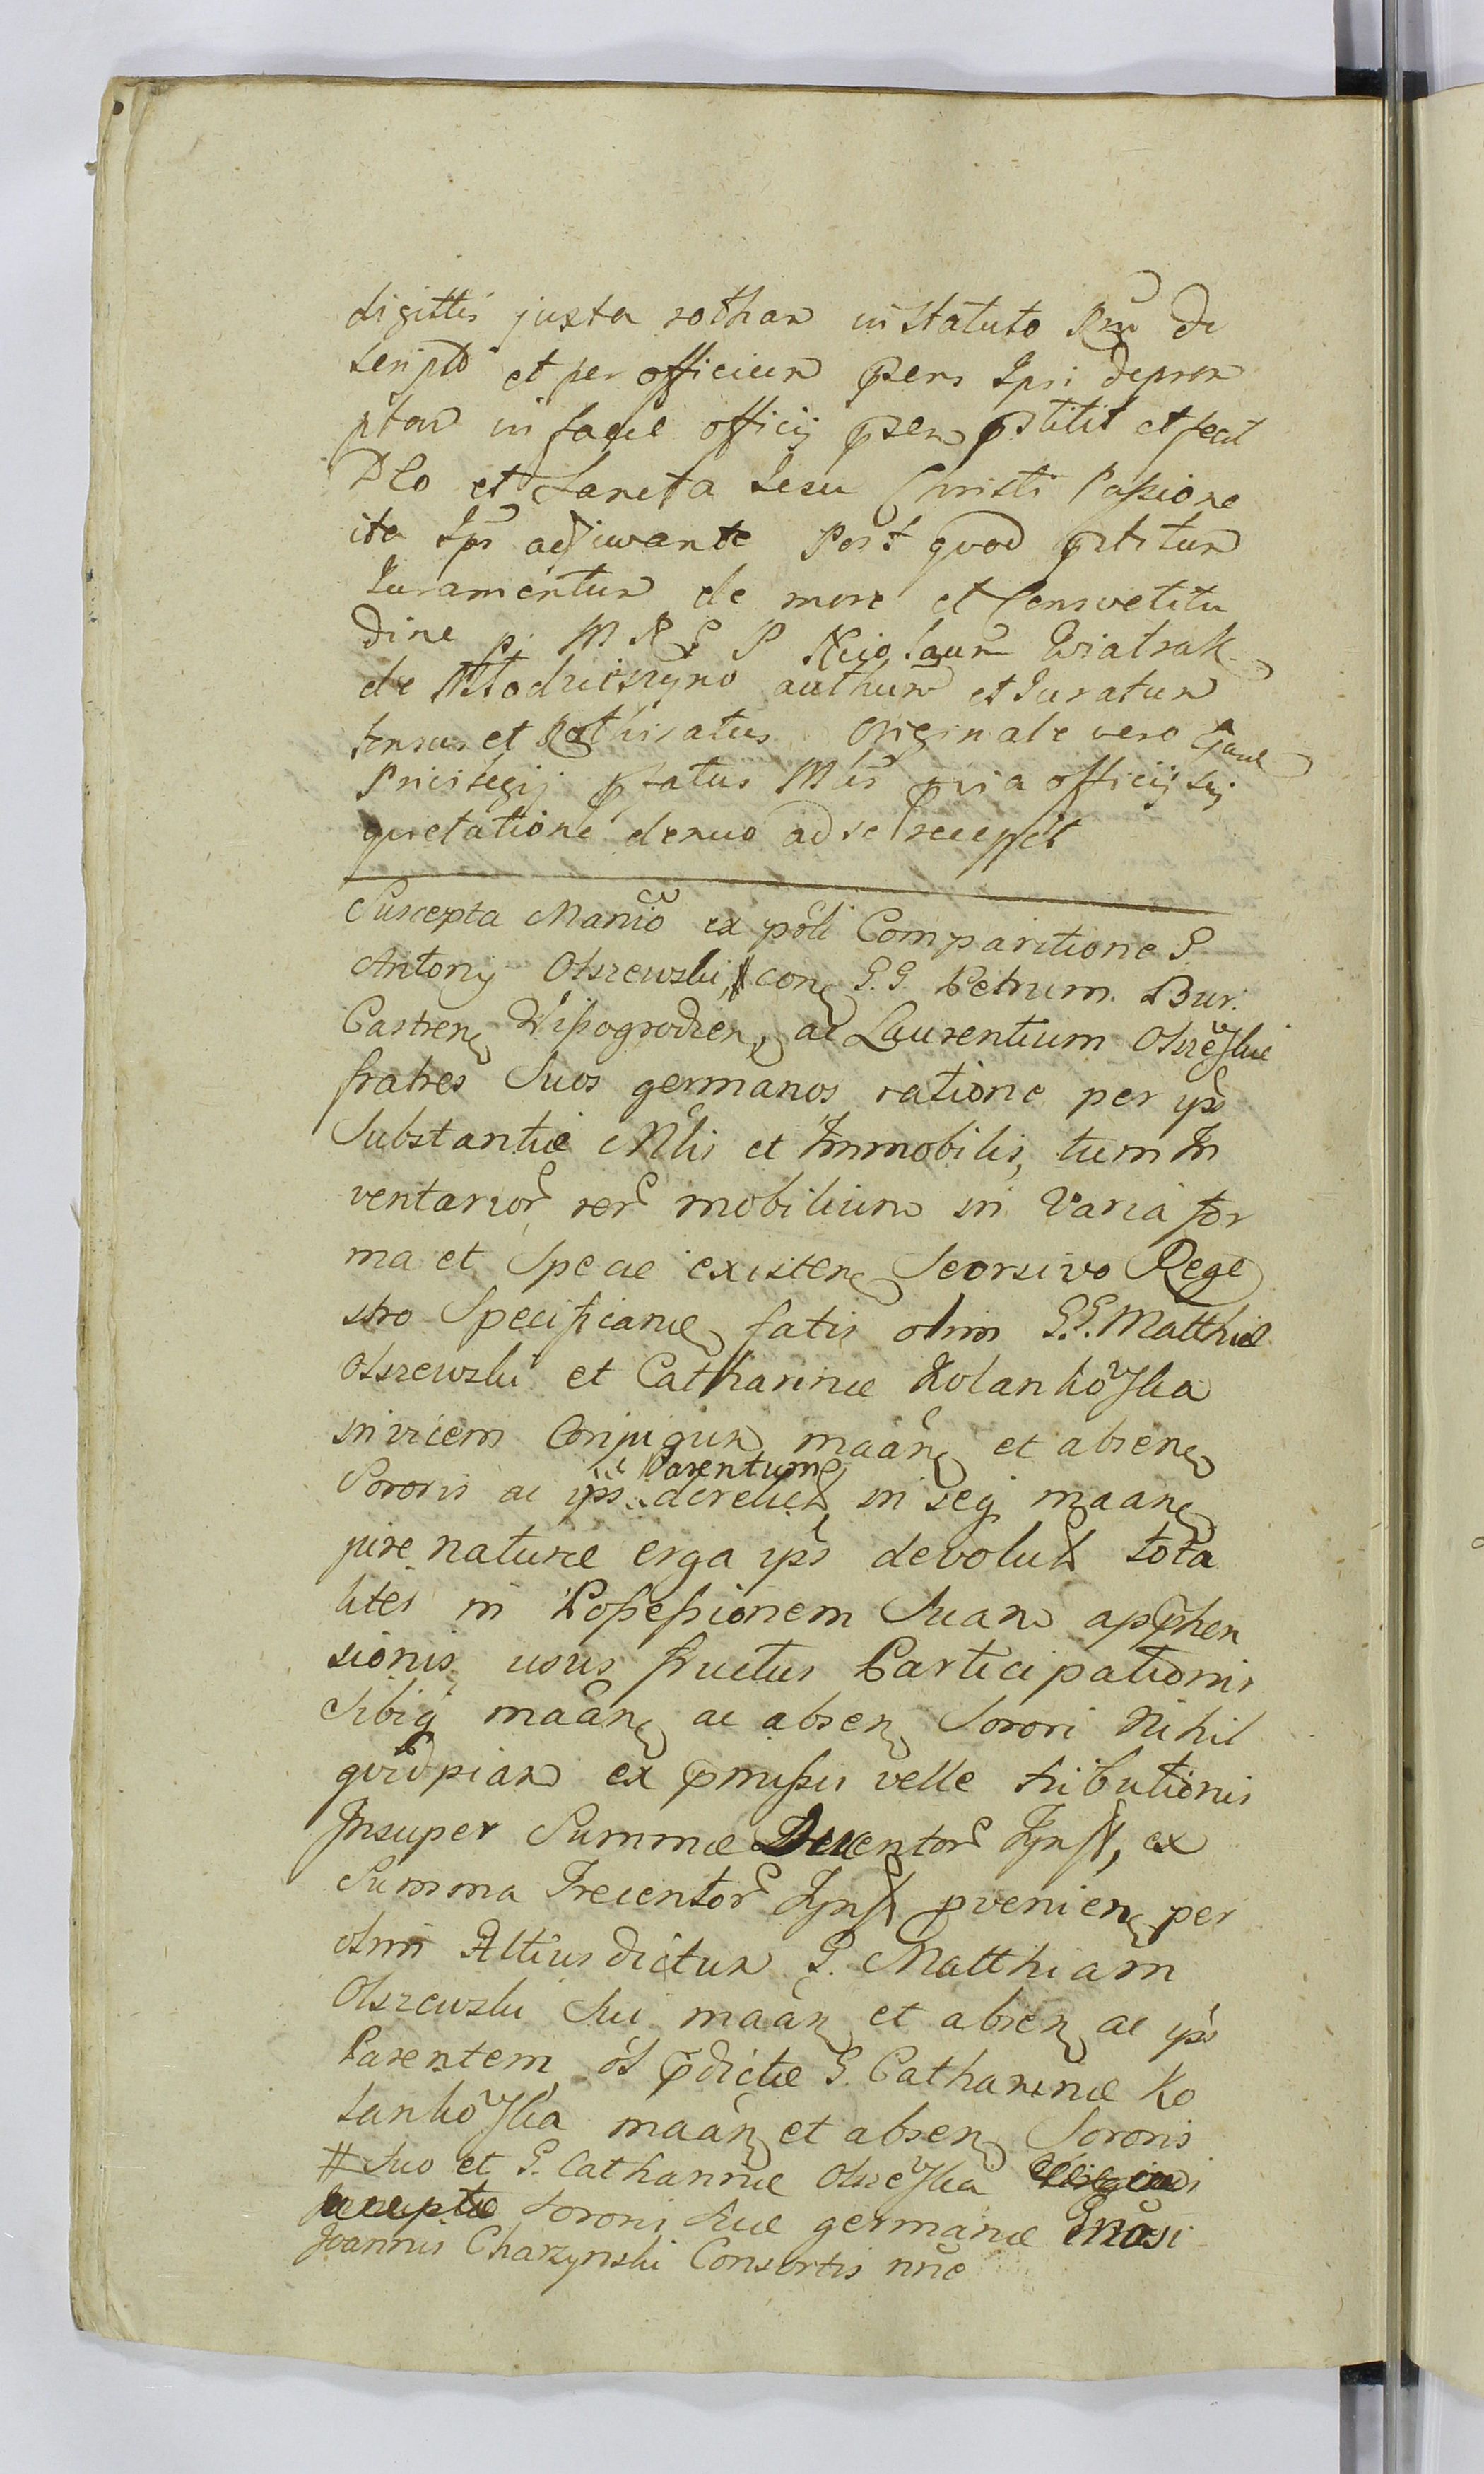 digittis juxta rotham in Statuto Rni de
scripto et per officium psens Ipsi deprom
ptam in facie officij psen pstitit et fecit
DEo et Sancta Iesu Christi Passione
ita Ips adiuvante Post quod pstitum
Iuramentum de more et Consvetitu
dine p. M R G P Nicolaum Wiatrak
de authum et Iuratum
et Originale vero
Privilegij pfatus Mris pvia officij sui
quietatione denuo ad se recepit
Suscepta Manio ex poli Comparitione G
Antonij Olszewski, con G.G. Petrum Bur.
Castren Wissogrodien, ac Laurentium Olszewskie
fratres Suos germanos ratione per ips
Substantiæ Mlis et Immobilis, tum In
ventarior rer mobilium in varia for
ma et Specie existen Seorsivo Rege
stro Specificanæ fatis olim G.G. Matthiæ
Olszewski et Catharinæ Kolankowska
invicem Conjugum maan et absen
Sororis ac ips Parentum derelict, in seq maan
jure naturæ erga ips devolut tota
liter in Possessionem Suam apphen
sionis, usus fructus Participationis
Sibiq maan ac absen Sorori Nihil
quidpiam ex pmissis velle tributionis
Insuper Summæ Ducentor Tynf, ex
Summa Trecentor Tynf pvenien per
olim Altius dictum G. Matthiam
Olszewski Sui maan et absen ac ips
Parentem, ol pdictæ G. Catharinæ Ko
lankowska maan et absen Sororis
# Suo et G. Catharinæ Olszewska
Sorori Suæ germanæ Gnosi
Joannis Charzynski Consortis nnc